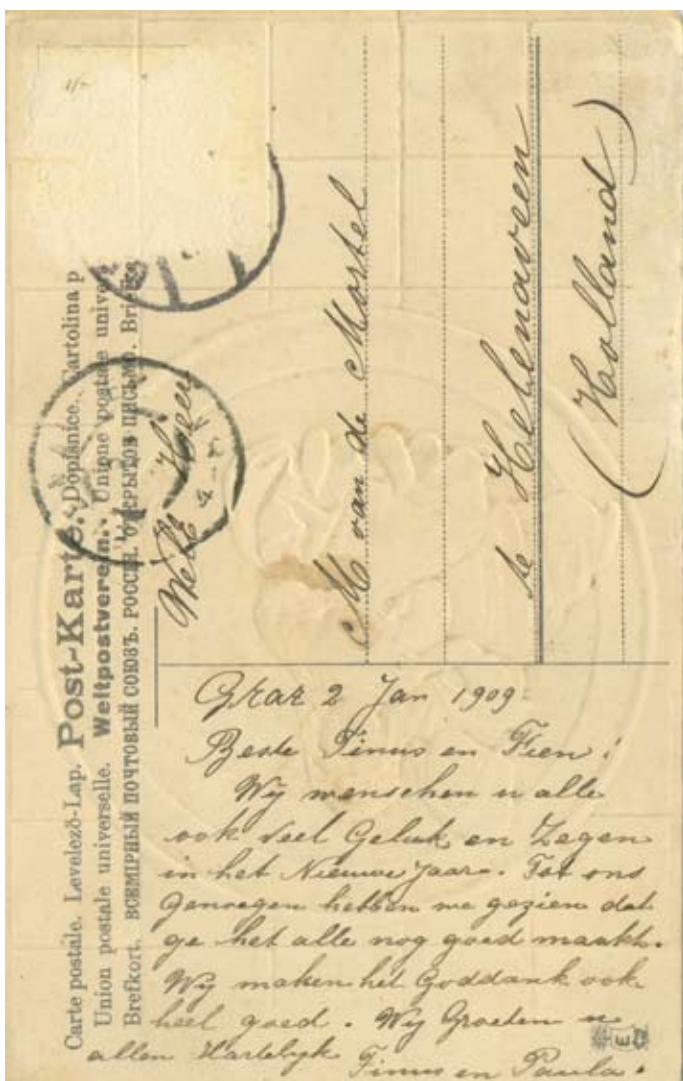 Carte postale. Levelező-Lap. Post-Karte. Dopisnice. Cartolina p
Union postale universelle. Weltpostverein. Unione postale univer
Brefkort. ВСЕМІРНЫЙ ПОЧТОВЫЙ СОЮЗЪ. РОССІЯ. ОТКРЫТОЕ ПИСЬМО. Briefka
Heer
M van de Mortel
te Helenaveen
(Holland)
Graz 2 Jan 1909.
Beste Tinus en Fien!
Wij menschen u alle
ook veel Geluk en Zegen
in het Nieuwe Jaar. Tot ons
Genoegen hebben we gezien dat
ge het alle nog goed maakt.
Wij maken het Goddank ook
heel goed. Wij Groeten u
allen Hartelijk
Tinus en Paula.